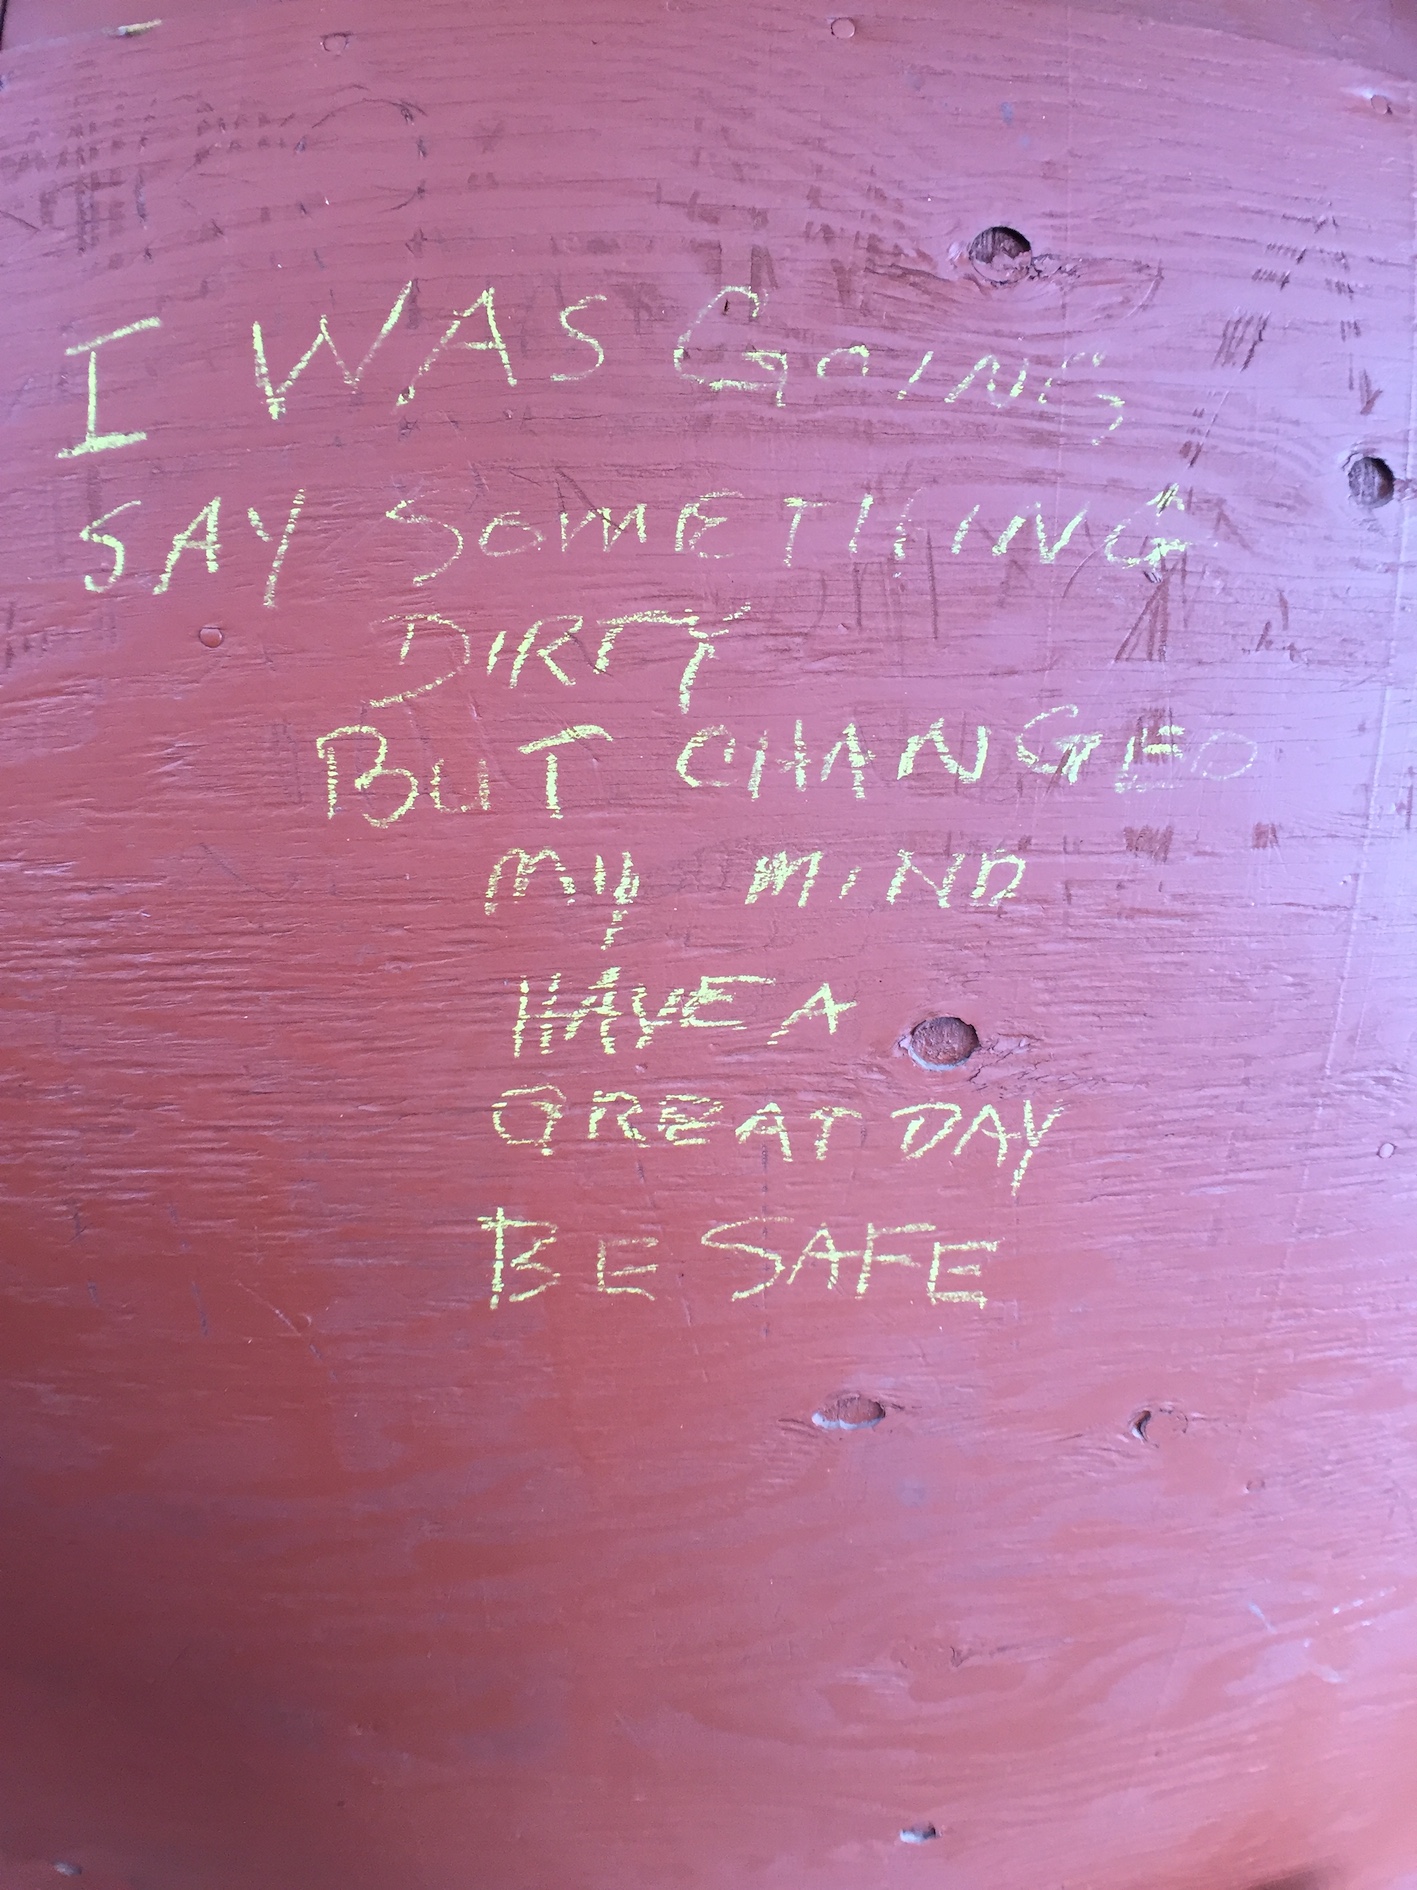 I WAS GOING
SAY SOMETHING
DIRTY
BUT CHANGED
MY MIND
HAVE A
GREAT DAY
BE SAFE